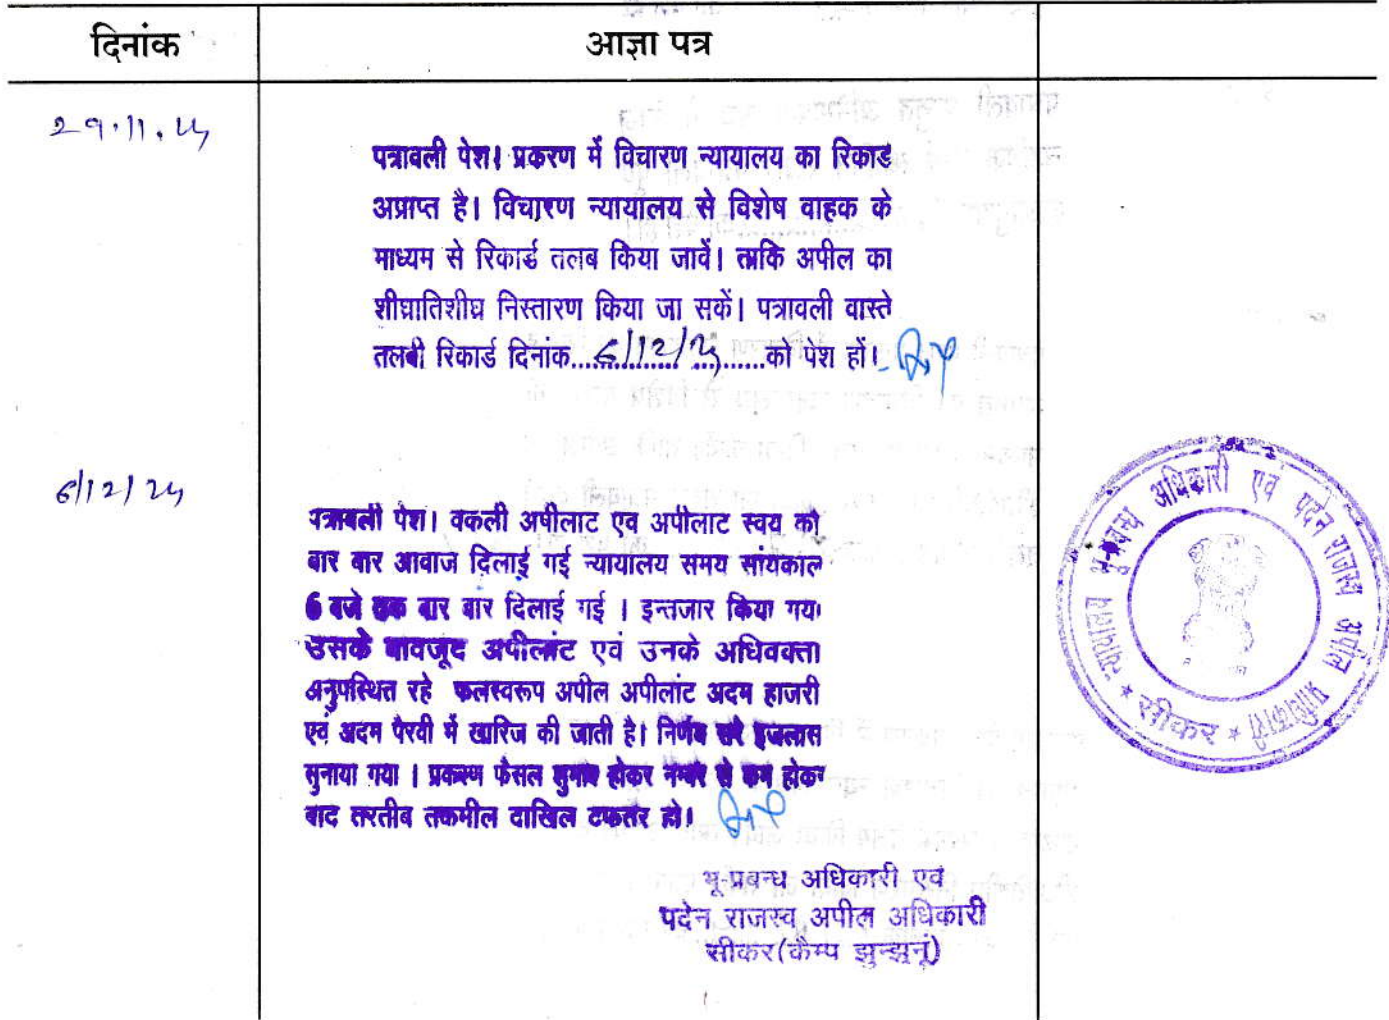 दिनांक
आज्ञा पत्र
29.11.24
पत्रावली पेश। प्रकरण में विचारण न्यायालय का रिकार्ड
अप्राप्त है। विचारण न्यायालय से विशेष वाहक के
माध्यम से रिकार्ड तलब किया जावें। ताकि अपील का
शीघ्रातिशीघ्र निस्तारण किया जा सकें। पत्रावली वास्ते
तलबी रिकार्ड दिनांक...6/12/24...को पेश हों।
6/12/24
पत्रावली पेश। वकली अपीलाट एव अपीलाट स्वय को
बार बार आवाज दिलाई गई न्यायालय समय सांयकाल
6 बजे तक बार बार दिलाई गई । इन्तजार किया गया
उसके बावजूद अपीलांट एवं उनके अधिवक्ता
अनुपस्थित रहे फलस्वरूप अपील अपीलांट अदम हाजरी
एवं अदम पैरवी में खारिज की जाती है। निर्णय सरे इजलास
सुनाया गया । प्रकरण फैसल शुमार होकर नम्बर से कम होकर
बाद तरतीब तकमील दाखिल दफतर हो।
भू-प्रबन्ध अधिकारी एवं
पदेन राजस्व अपील अधिकारी
सीकर(कैम्प झुन्झुनूं)
न्यायालय भू-प्रबन्ध अधिकारी एवं पदेन राजस्व अपील प्राधिकारी
* सीकर *